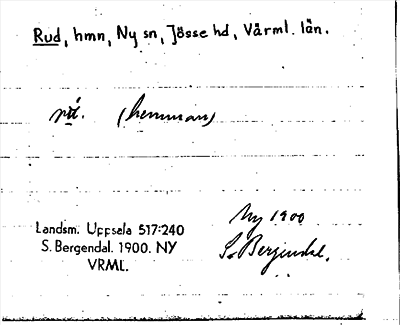 Rud, hmn, Ny sn, Jösse hd, Värml. län.
(hemman)
Ny 1900
S. Bergendal.
Landsm. Uppsala 517:240
S. Bergendal. 1900. NY
VRML.